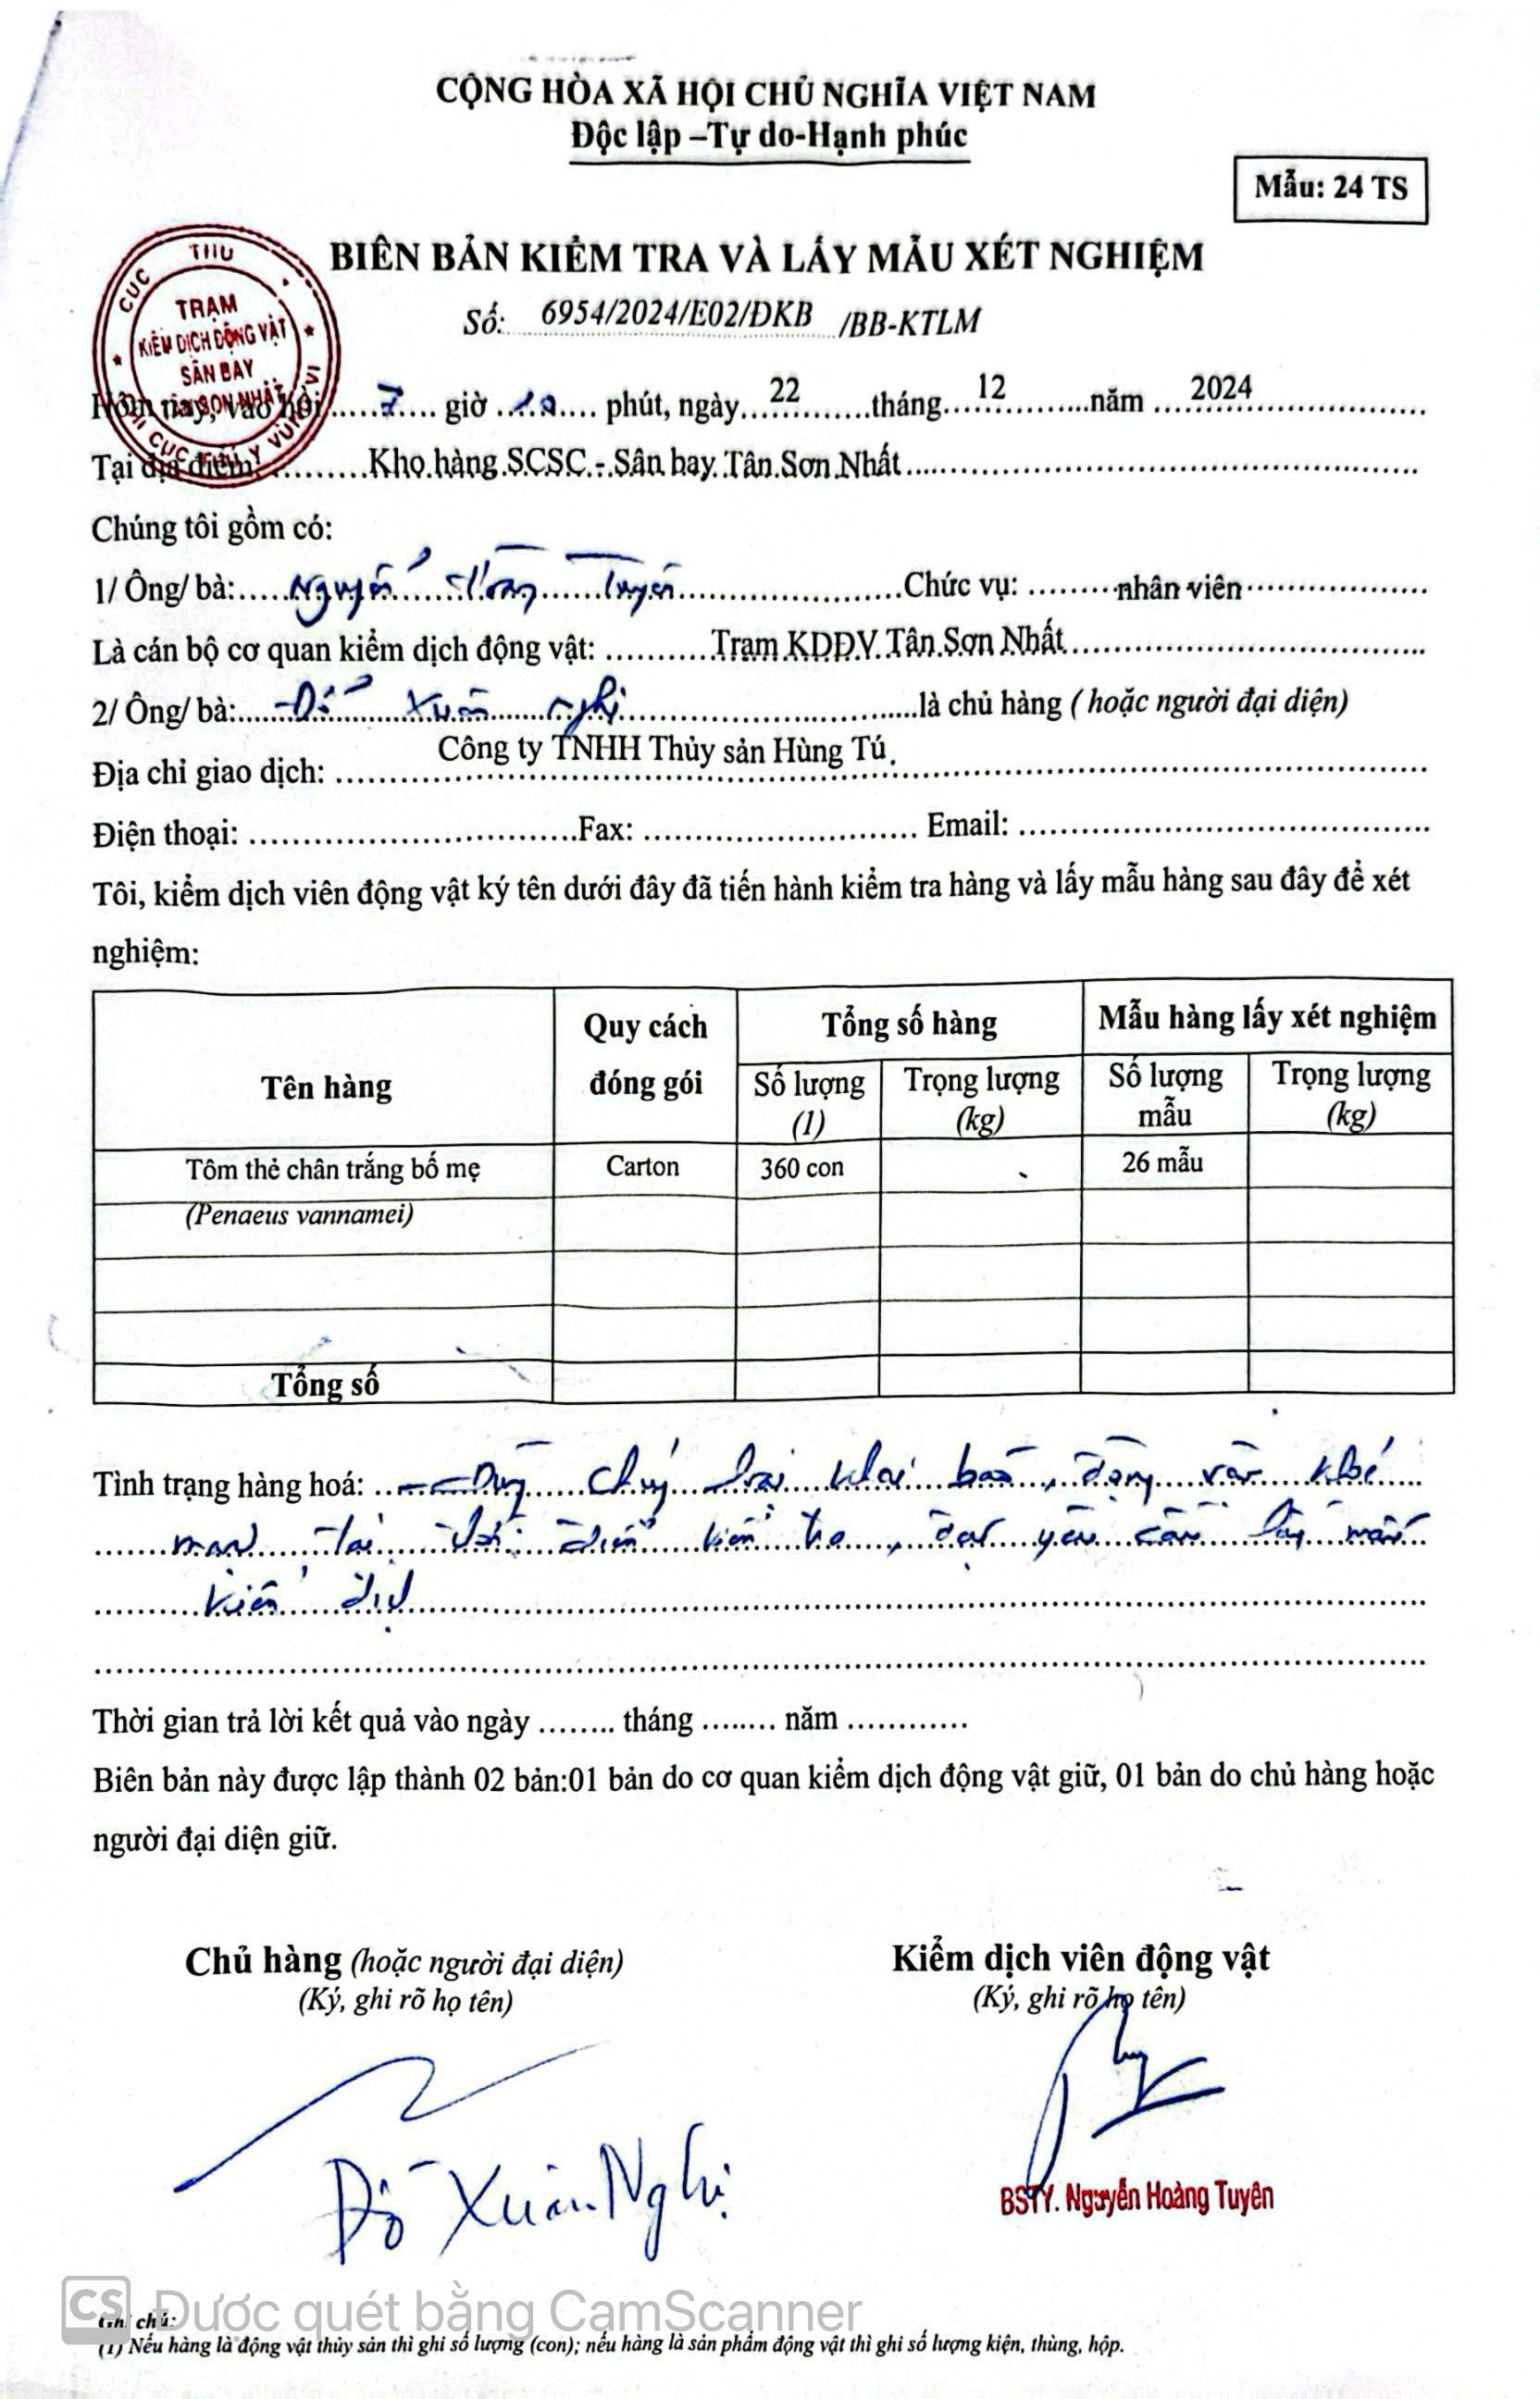 CỘNG HÒA XÃ HỘI CHỦ NGHĨA VIỆT NAM
Độc lập –Tự do-Hạnh phúc
Mẫu: 24 TS
BIÊN BẢN KIỂM TRA VÀ LẤY MẪU XÉT NGHIỆM
Số: 6954/2024/E02/ĐKB /BB-KTLM
CỤC THÚ
TRẠM
KIỂM DỊCH ĐỘNG VẬT
SÂN BAY
TÂN SƠN NHẤT
CHI CỤC THÚ Y VÙNG VI
Hôm nay, vào hồi 7 giờ phút, ngày 22 tháng 12 năm 2024
Tại địa điểm: Kho hàng SCSC - Sân bay Tân Sơn Nhất
Chúng tôi gồm có:
1/ Ông/ bà: Nguyễn Hoàng Tuyên Chức vụ: nhân viên
Là cán bộ cơ quan kiểm dịch động vật: Trạm KDĐV Tân Sơn Nhất
2/ Ông/ bà: Đỗ Xuân Nghị là chủ hàng ( hoặc người đại diện)
Công ty TNHH Thủy sản Hùng Tú.
Địa chỉ giao dịch:
Điện thoại: Fax: Email:
Tôi, kiểm dịch viên động vật ký tên dưới đây đã tiến hành kiểm tra hàng và lấy mẫu hàng sau đây để xét
nghiệm:
Tên hàng Quy cách đóng gói Tổng số hàng Mẫu hàng lấy xét nghiệm
Số lượng (1) Trọng lượng (kg) Số lượng mẫu Trọng lượng (kg)
Tôm thẻ chân trắng bố mẹ Carton 360 con 26 mẫu
(Penaeus vannamei)
Tổng số
Tình trạng hàng hoá: Đúng chủng loại khai báo, động vật khỏe
mạnh tại thời điểm kiểm tra, đạt yêu cầu lấy mẫu
kiểm dịch
Thời gian trả lời kết quả vào ngày ........ tháng ........ năm ............
Biên bản này được lập thành 02 bản:01 bản do cơ quan kiểm dịch động vật giữ, 01 bản do chủ hàng hoặc
người đại diện giữ.
Chủ hàng (hoặc người đại diện) Kiểm dịch viên động vật
(Ký, ghi rõ họ tên) (Ký, ghi rõ họ tên)
Đỗ Xuân Nghị
BSTY. Nguyễn Hoàng Tuyên
CS Được quét bằng CamScanner
Ghi chú:
(1) Nếu hàng là động vật thủy sản thì ghi số lượng (con); nếu hàng là sản phẩm động vật thì ghi số lượng kiện, thùng, hộp.